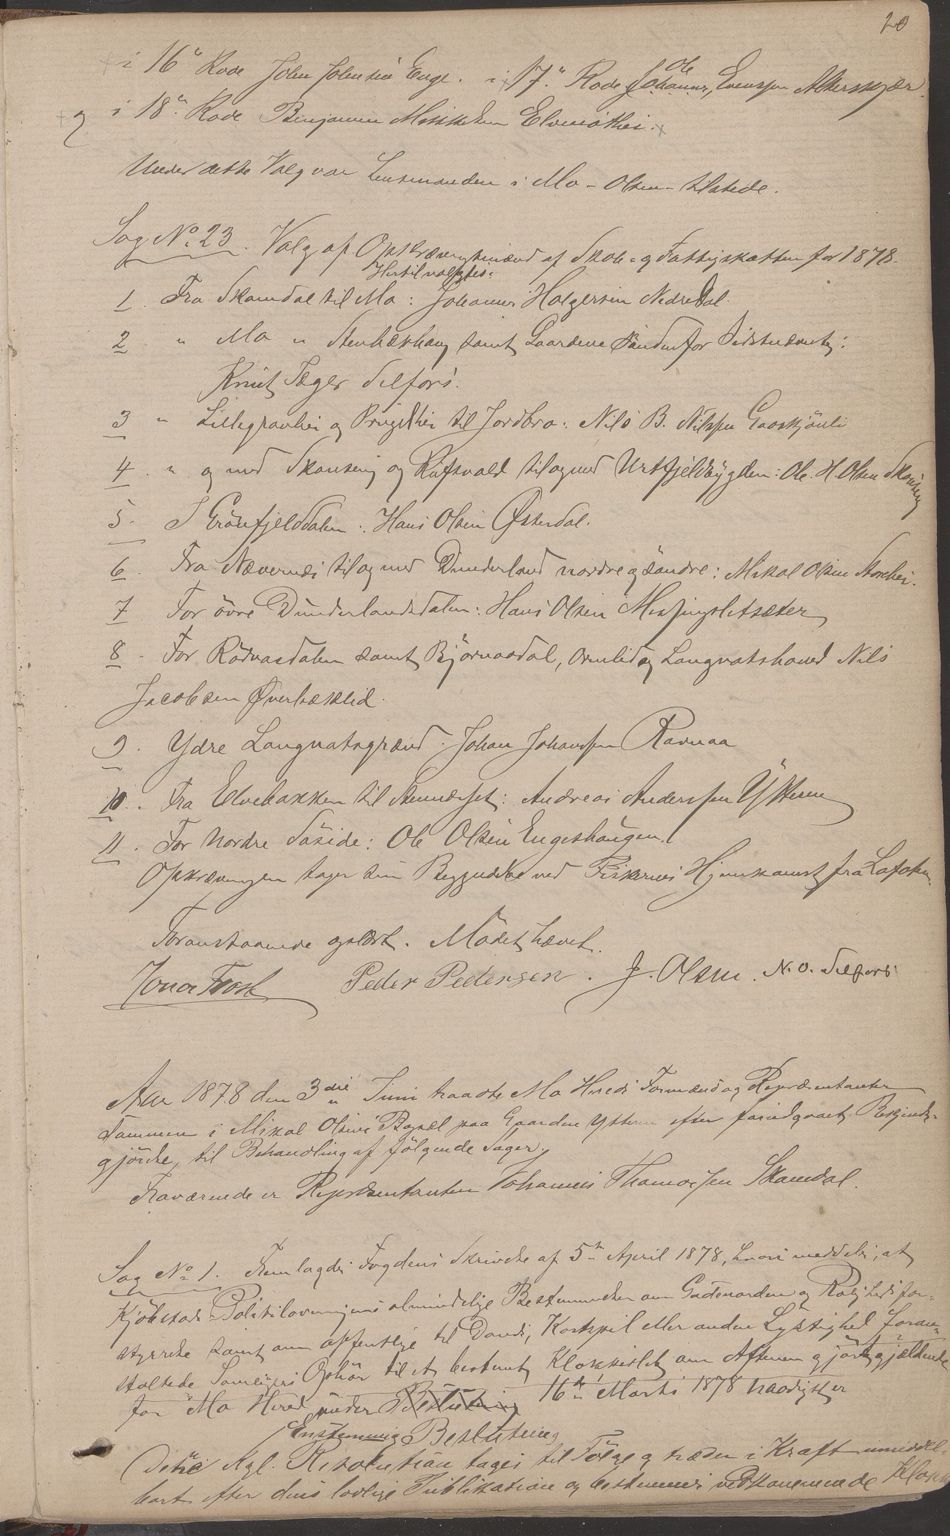 20
i 16de Rode John Johnsen Enge. i 17de Rode Ole Johannes Evensen Alterskjær
og i 18de Rode Benjamin Mikkelsen Elvemöthei.
Under dette Valg var Lensmanden i Mo - Olsen - tilstede.
Sag No 23. Valg af Opkrævningsmænd af Skole- og Fattigskatten for 1878.
Hertil valgtes:
1 Fra Skamdal til Mo: Johannes Holgersen Nedredal.
2 " Mo " Stenbækhaug samt Gaardene søndenfor Sidstnævnte:
Knut Jæger Selfors.
3 " Lillegravhei og til Jordbro: Nils B. Nilssen Graaskjönli
4 " og med Skonseng og Röfsvold til og med Urtfjeldbygden: Ole H. Olsen Skonseng
5. I Grönfjelddalen: Hans Olsen Østerdal.
6 Fra Nævernes til og med Dunderland nordre og söndre: Mikal Olsen Storhei.
7 For övre Dunderlandsdalen: Hans Olsen Messingsletsæter
8 For Rödvasdalen samt Bjørnaadal, Ormlid og Langvatshoved Nils
Jacobsen Øverbæklid.
9. Ydre Langvatsgrænd: Johan Johanssen Ravnaa
10. Fra Elvebakken til Stennæset: Andreas Anderssen Ytteren
11. For Nordre Söside: Ole Olsen Engeshaugen.
Opkrævningen tager sin Begyndelse ved Fiskernes Hjemkomst fra Lofoten.
Foranstaaende oplæst. Mödet hævet.
Peder Pedersen. J. Olsen. N. O. Selfors
Aar 1878 den 3die Juni traadte Mo Herreds Formænd og Repræsentanter
sammen i Mikal Olsens Bopæl paa Gaarden Ytteren efter foregaaet Bekjendt-
gjörelse, til Behandling af følgende Sager.
Fraværende er Repræsentanten Johannes Thomassen Skamdal.
Sag No 1. Fremlagdes Fogdens Skrivelse af 5te April 1878, hvori meddeles, at
Kjöbstad-Politilovgivningens almindelige Bestemmelser om Gadeorden og Rolighedsfor-
styrrelse samt om offentlige til Dands, Kortspil eller anden Lystighed foran-
staltede Samlingers Ophör til et bestemt Klokkeslet om Aftenen gjöres gjældende
for Mo Herred under 16de Marts 1878 naadigst er
Enstemmig Beslutning
Dette Kgl. Resolution tages til Fölge og træder i Kraft umiddel-
bart efter dens lovlige Publikation og bestemmes vedkommende Klokke-